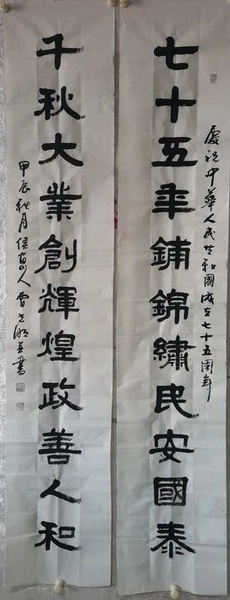 慶祝中華人民共和國成立七十五周年
七十五年鋪錦繡民安國泰
千秋大業創輝煌政善人和
甲辰秋月